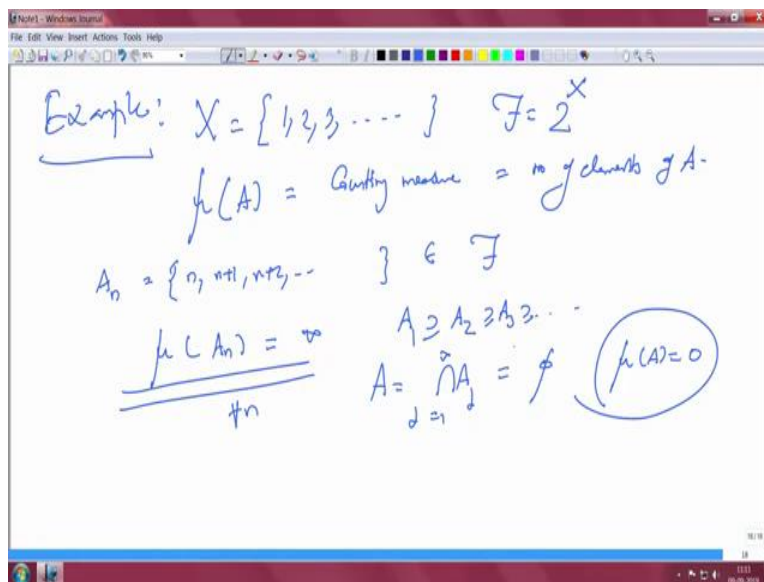 Note1 - Windows Journal
File Edit View Insert Actions Tools Help
90%
Example: X = {1, 2, 3, ----- } ℱ = 2^X
μ(A) = Counting measure = no of elements of A.
A_n = {n, n+1, n+2, -- } ∈ ℱ
A_1 ⊇ A_2 ⊇ A_3 ⊇ ...
μ(A_n) = ∞
∀n
A = ⋂_{j=1}^∞ A_j = φ
μ(A) = 0
18/18
18
11:11